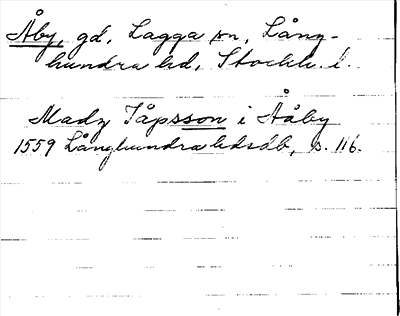 Åby, gd, Lagga sn, Lång-
hundra hd, Stockh. l.
Madz Jåpsson i Ååby
1559 Långhundra hdsdb, s. 116.